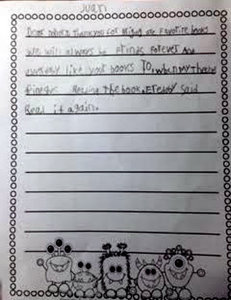 Juan
Dear Robert Thank you for Writing our Favorite books
We will always be Friends Forever And
everybody like your books TO, when my Theacher
Finishes Reading The book, Everybody Said
Read it again.